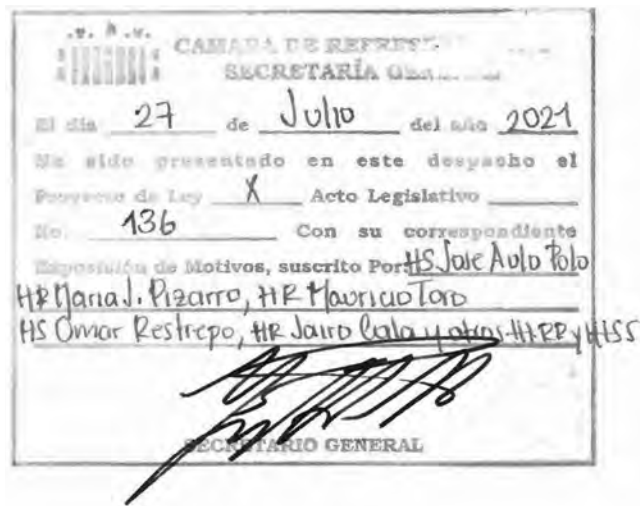 CAMARA DE REPRES
SECRETARÍA GE
El día 27 de Julio del año 2021
Ha sido presentado en este despacho el
Proyecto de Ley X Acto Legislativo
No. 136 Con su correspondiente
Exposición de Motivos, suscrito Por: HS Jose Aulo Polo
HR Maria J. Pizarro, HR Mauricio Toro
HS Omar Restrepo, HR Jairo Cala y otros HHRR y HHSS
SECRETARIO GENERAL